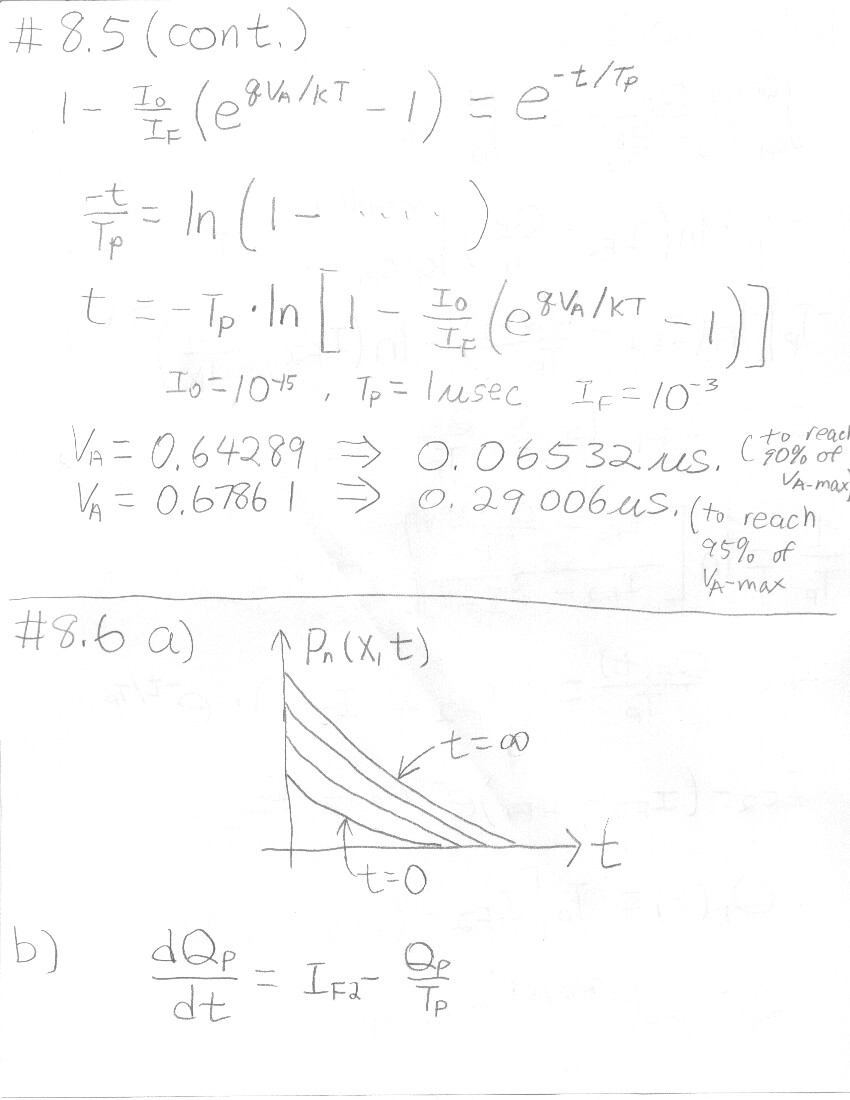 # 8.5 (cont.)
1 - I₀/I_F (e^{qV_A/KT} - 1) = e^{-t/τ_p}
-t/τ_p = ln (1 - ·····)
t = -τ_p · ln [1 - I₀/I_F (e^{qV_A/KT} - 1)]
I₀ = 10^{-15} , τ_p = 1 μsec I_F = 10^{-3}
V_A = 0.64289 ⇒ 0.06532 μs. (to reach 90% of V_{A-max})
V_A = 0.67861 ⇒ 0.29006 μs. (to reach
95% of
V_{A-max}
#8.6 a)
P_n (x, t)
t = ∞
t
t = 0
b) dQ_p/dt = I_{F2} - Q_p/τ_p